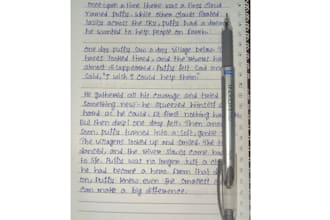 Once upon a time there was a first cloud
named Puffy. While other clouds floated
lazily across the sky, Puffy had a
he wanted to help people on Earth.
One day Puffy saw a dry village below. T
looked tired, and the
almost disappeared. Puffy felt sad and
said, "I wish I could help them"
He gathered all his courage and tried
something new he squeezed himself
hard as he could. At first nothing ha
But then drop! one drop fell. Then anot
soon, Puffy turned into a soft, gentle
The villagers looked up and smiled. The
danced, and the river slowly came
to life. Puffy was no longer just a cl
he had become a hero. From that d
on, Puffy knew even the smallest
can make a big difference.